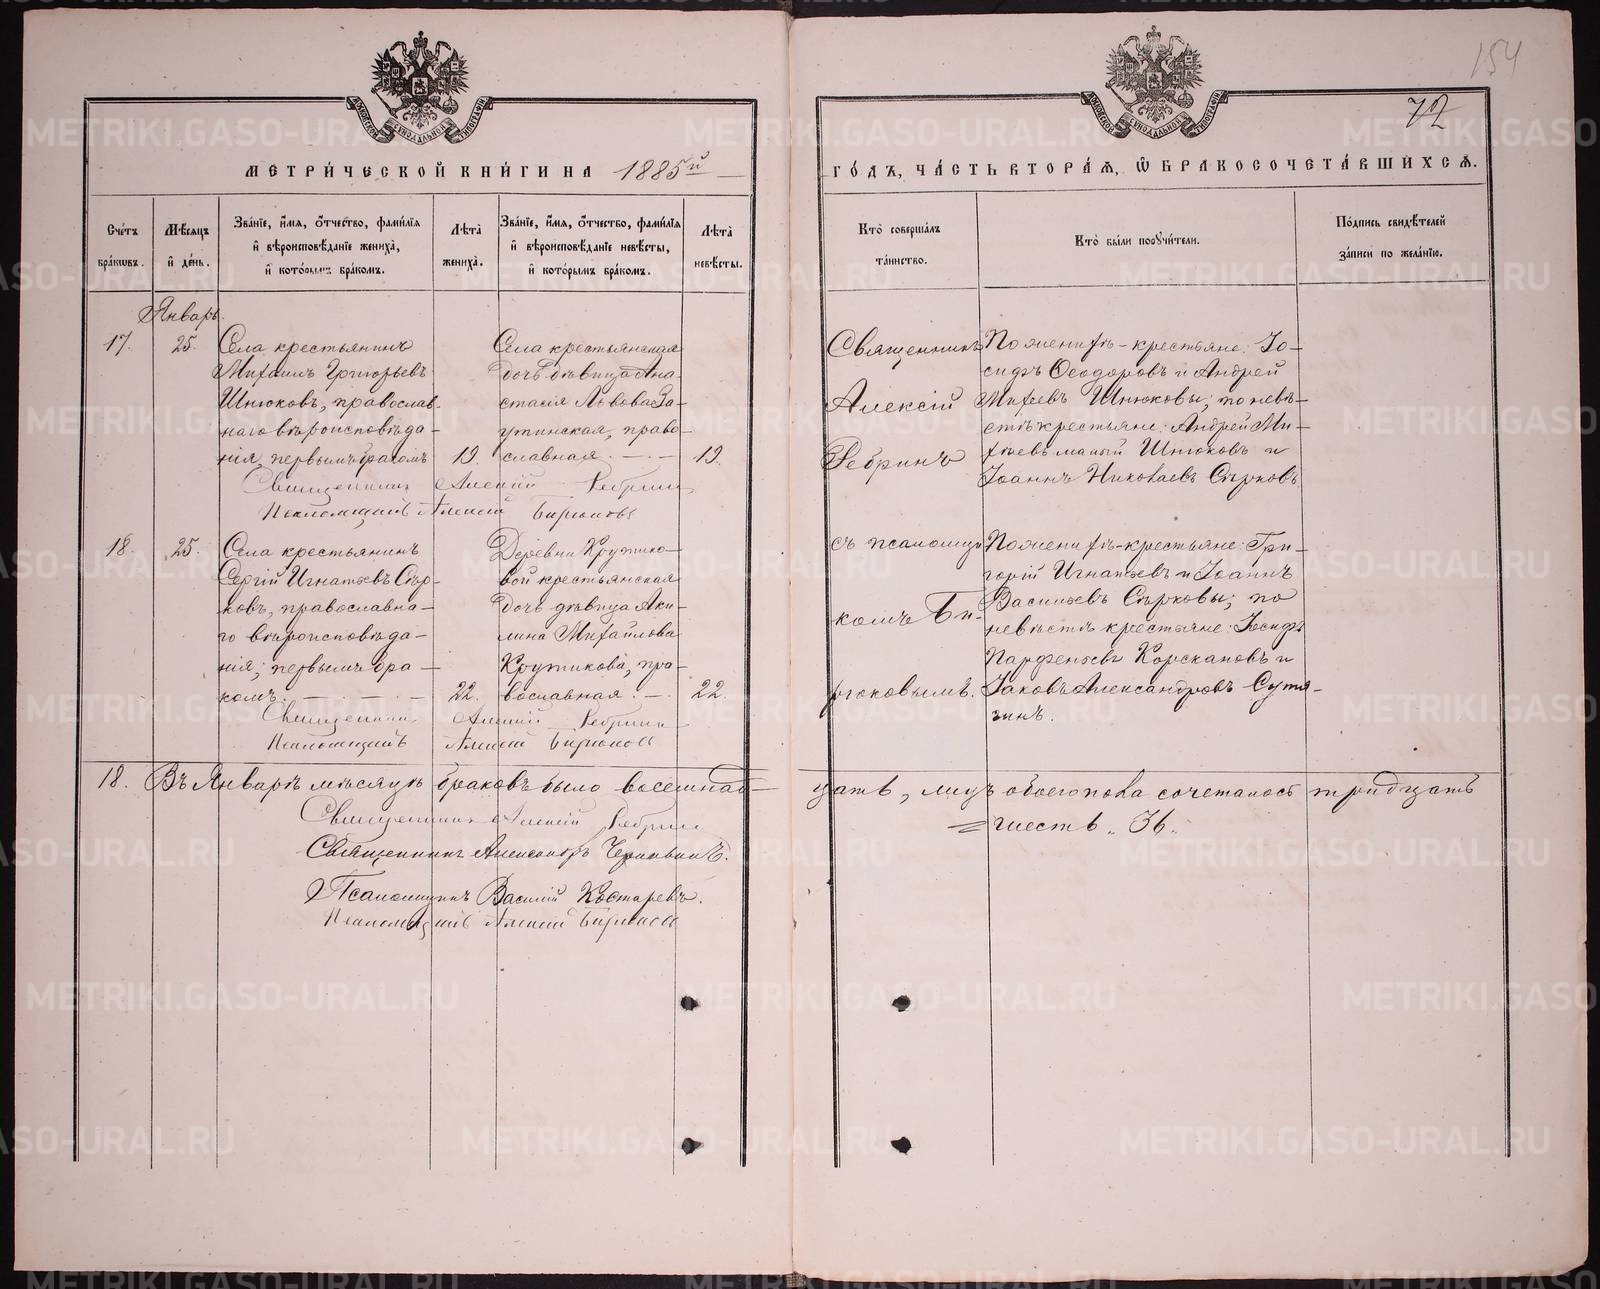 154
72
МЕТРИ́ЧЕСКОЙ КНИ́ГИ НА 1885й
ГО́ДЪ, ЧА́СТЬ ВТОРА́Я, Ѡ БРАКОСОЧЕТА́ВШИХСЯ.
Сче́тъ бра́кωвъ.
Мѣ́сяцъ и де́нь.
Зва́нїе, и́мя, о́тчество, фами́лїя
и вѣроисповѣ́данїе жениха̀,
и кото́рымъ бра́комъ.
Лѣ́та жениха̀.
Зва́нїе, и́мя, о́тчество, фами́лїя
и вѣроисповѣ́данїе невѣ́сты,
и кото́рымъ бра́комъ.
Лѣ́та невѣ́сты.
Кто̀ соверша́лъ
та́инство.
Кто̀ бы́ли пору́чители.
По́дпись свидѣ́телей
за́писи по жела́нїю.
Январь.
17. 25.
Села крестьянинъ
Михаилъ Григорьевъ
Шнюковъ, православ-
наго вѣроисповѣда-
нія, первымъ бракомъ
19.
Села крестьянская
дочь дѣвица Ана-
стасія Львова За-
утинская, право-
славная. — . —
19.
Священникъ Алексій Ребринъ
Псаломщикъ Алексѣй Бирюковъ
Священникъ
Алексій
Ребринъ
По женихѣ - крестьяне: Іо-
сифъ Ѳеодоровъ и Андрей
Михѣевъ Шнюковы; по невѣ-
стѣ крестьяне: Андрей Ми-
хѣевъ малый Шнюковъ и
Іоаннъ Николаевъ Сѣрковъ.
18. 25.
Села крестьянинъ
Сергій Игнатьевъ Сѣр-
ковъ, православна-
го вѣроисповѣда-
нія; первымъ бра-
комъ. — . — . —
22.
Деревни Крутико-
вой крестьянская
дочь дѣвица Аки-
лина Михайлова
Крутикова, пра-
вославная. — . —
22.
Священникъ Алексій Ребринъ
Псаломщикъ Алексѣй Бирюковъ
съ псаломщи-
комъ Би-
рюковымъ.
По женихѣ - крестьяне: Гри-
горій Игнатьевъ и Іоаннъ
Васильевъ Сѣрковы; по
невѣстѣ крестьяне: Іосифъ
Парфеньевъ Корскановъ и
Іаковъ Александровъ Сутя-
гинъ.
18. Въ Январѣ мѣсяцѣ браковъ было восемнад-
цать, лицъ обоего пола сочеталось тридцать
шесть „ 36.„
Священникъ Алексій Ребринъ
Священникъ Александръ
Псаломщикъ Василій Костаревъ.
Псаломщикъ Алексѣй Бирюковъ